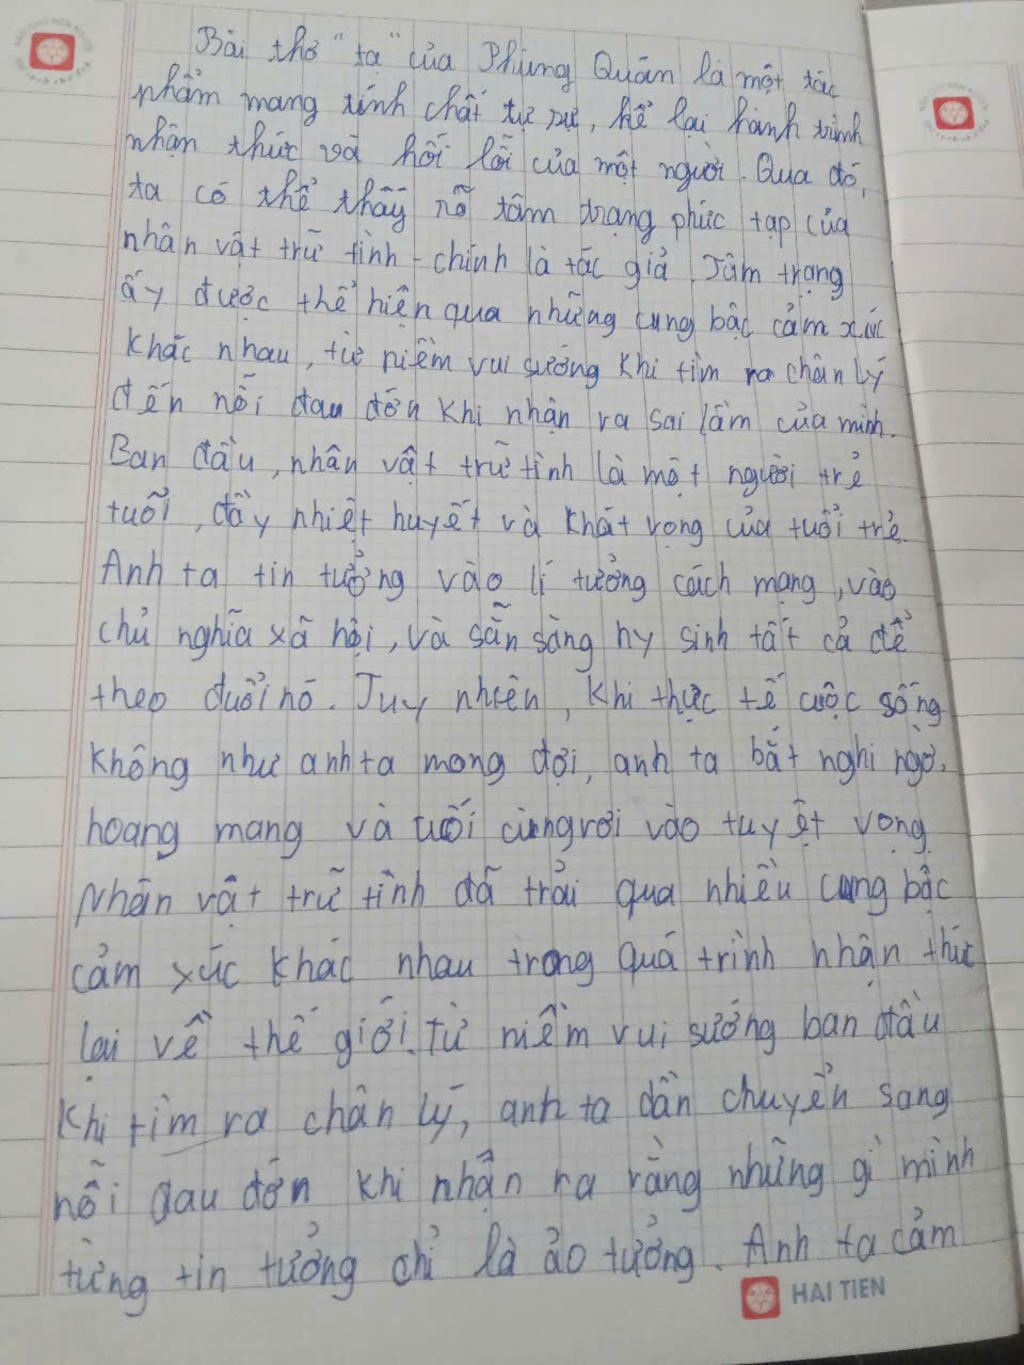 Bài thơ "tạ" của Phùng Quán là một tác
phẩm mang tính chất tự sự, kể lại hành trình
nhận thức và hối lỗi của một người. Qua đó,
ta có thể thấy rõ tâm trạng phức tạp của
nhân vật trữ tình - chính là tác giả. Tâm trạng
ấy được thể hiện qua những cung bậc cảm xúc
khác nhau, từ niềm vui sướng khi tìm ra chân lý
đến nỗi đau đớn khi nhận ra sai lầm của mình.
Ban đầu, nhân vật trữ tình là một người trẻ
tuổi, đầy nhiệt huyết và khát vọng của tuổi trẻ.
Anh ta tin tưởng vào lí tưởng cách mạng, vào
chủ nghĩa xã hội, và sẵn sàng hy sinh tất cả để
theo đuổi nó. Tuy nhiên, khi thực tế cuộc sống
không như anh ta mong đợi, anh ta bắt nghi ngờ,
hoang mang và cuối cùng rơi vào tuyệt vọng
Nhân vật trữ tình đã trải qua nhiều cung bậc
cảm xúc khác nhau trong quá trình nhận thức
lại về thế giới. Từ niềm vui sướng ban đầu
khi tìm ra chân lý, anh ta dần chuyển sang
nỗi đau đớn khi nhận ra rằng những gì mình
từng tin tưởng chỉ là ảo tưởng. Anh ta cảm
HAI TIEN